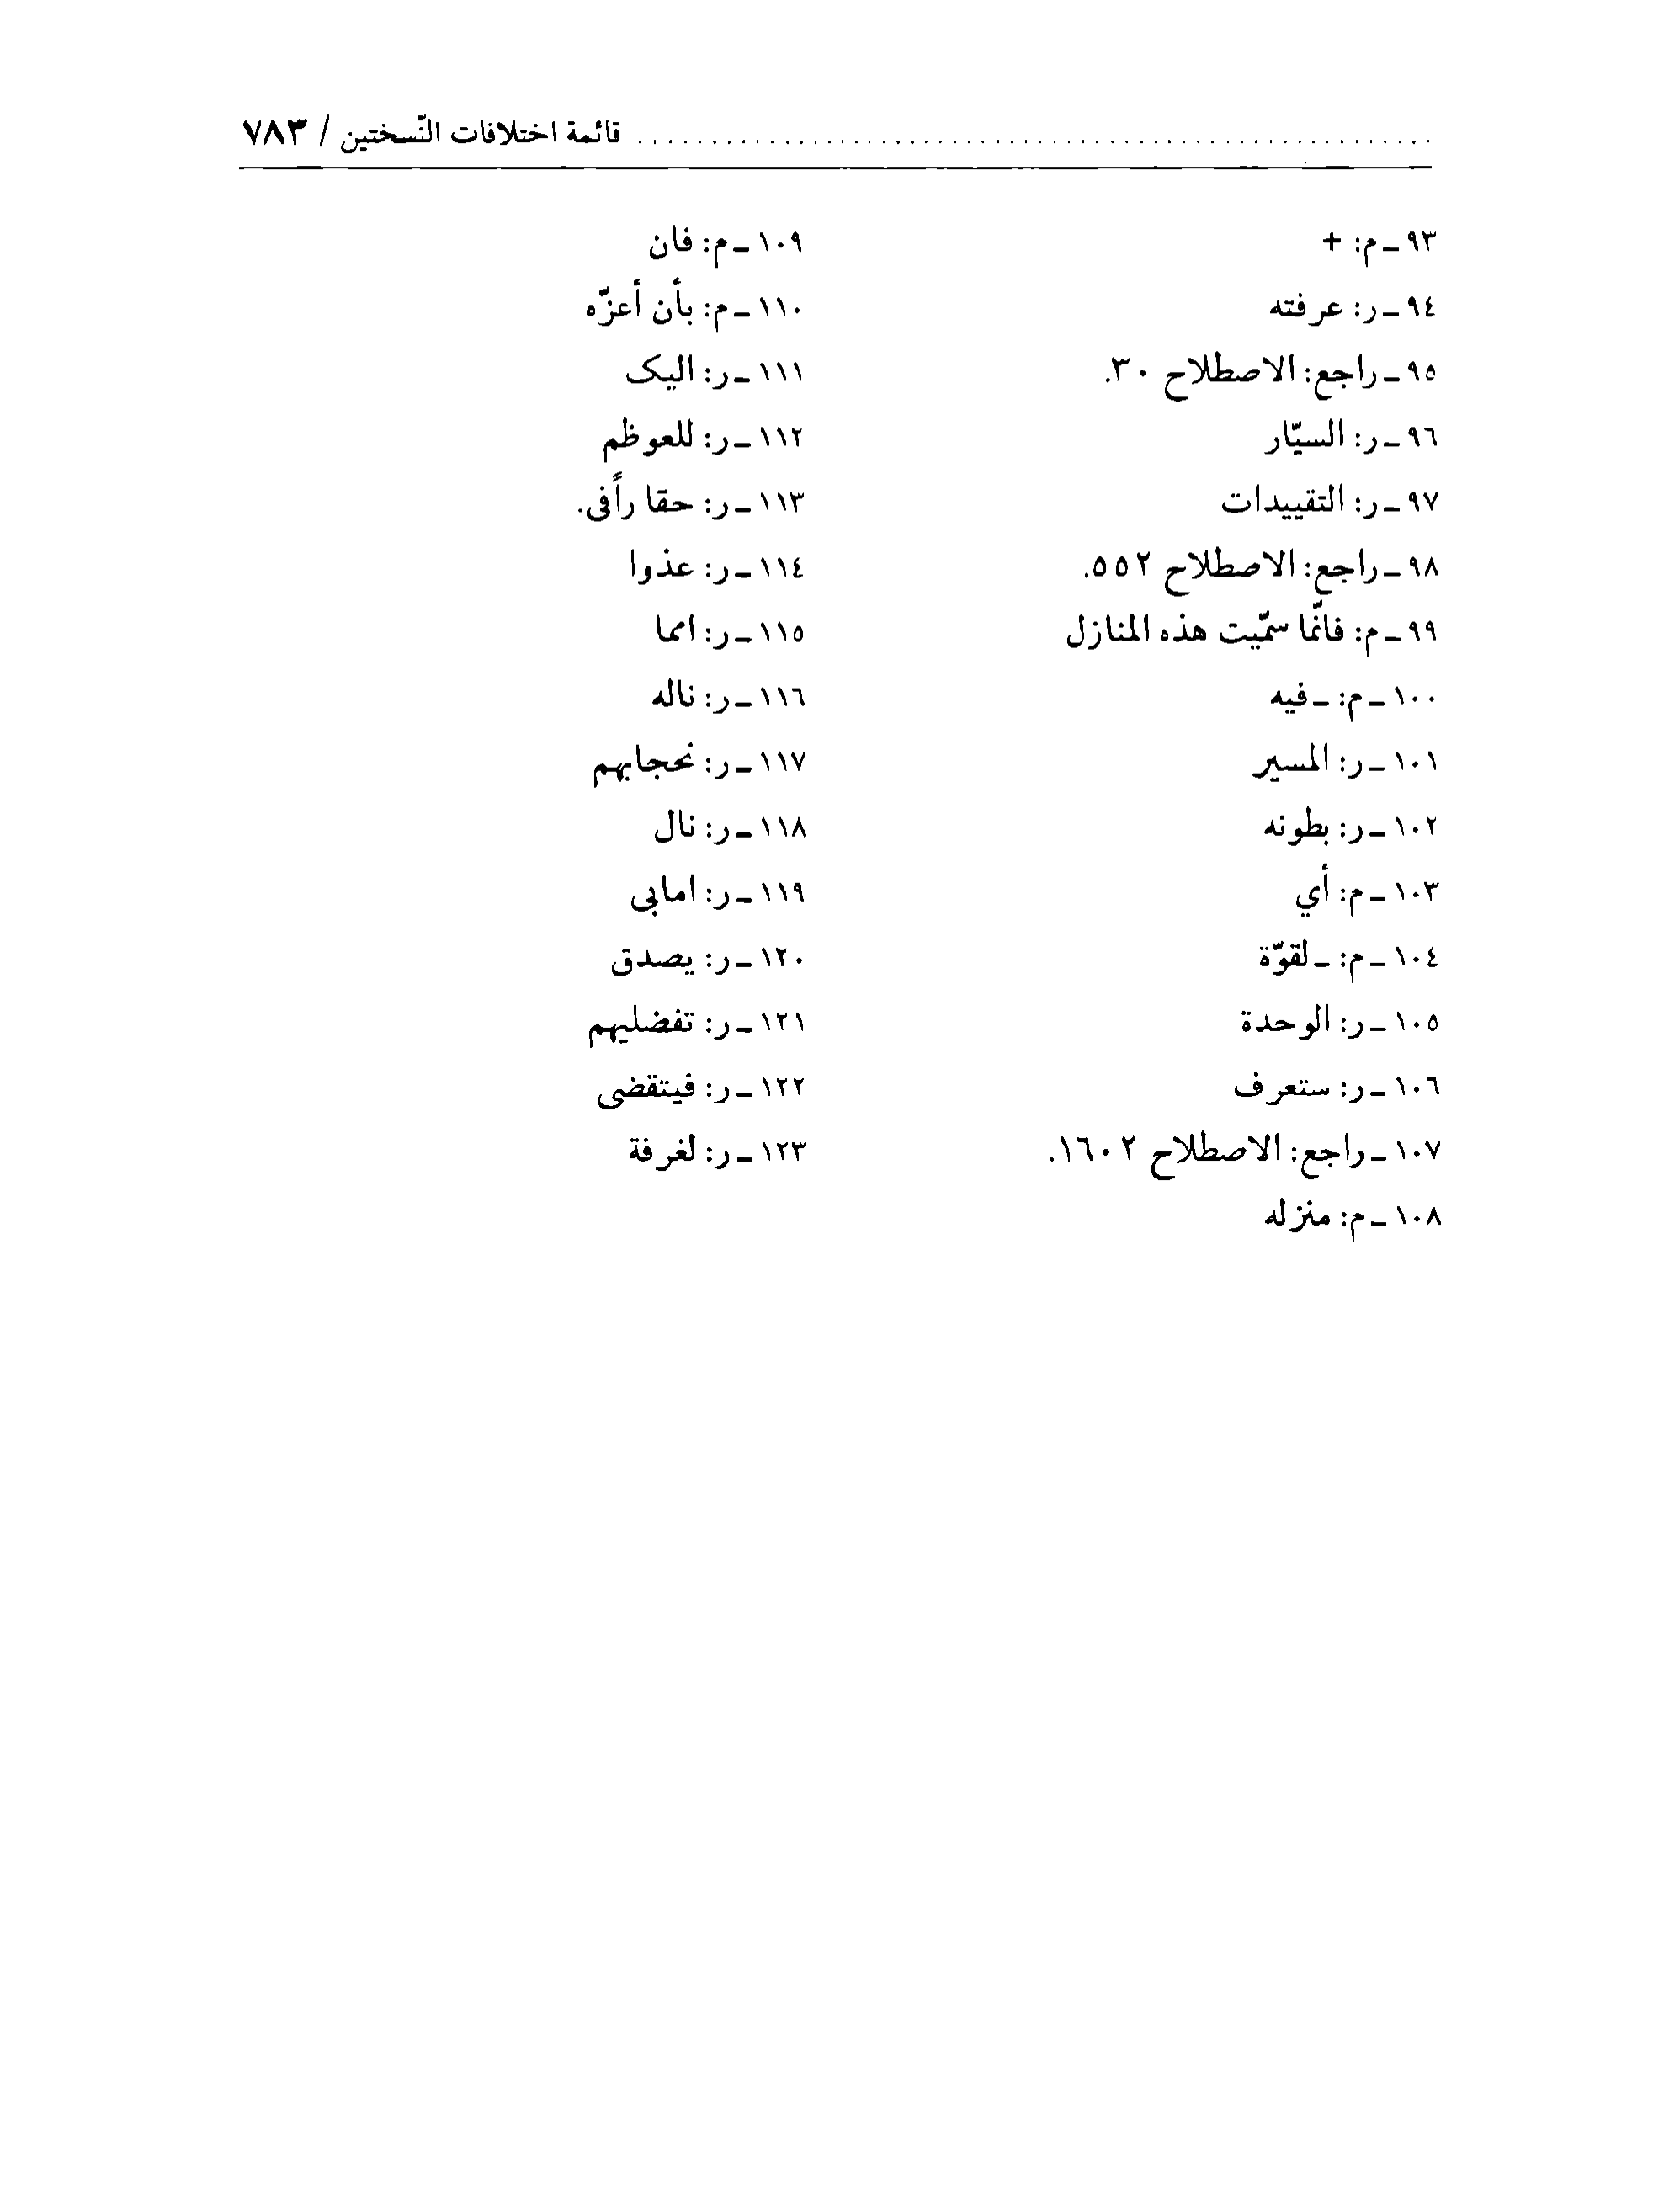 قائمة اختلافات النّسختين / ٧٨٣
٩٣ ـ م: +
٩٤ ـ ر: عرفته
٩٥ ـ راجع: الاصطلاح ٣٠.
٩٦ ـ ر: السيّار
٩٧ ـ ر: التقييدات
٩٨ ـ راجع: الاصطلاح ٥٥٢.
٩٩ ـ م: فانّما سمّيت هذه المنازل
١٠٠ ـ م: ـ فيه
١٠١ ـ ر: المسير
١٠٢ ـ ر: بطونه
١٠٣ ـ م: أي
١٠٤ ـ م: ـ لقوّة
١٠٥ ـ ر: الوحدة
١٠٦ ـ ر: ستعرف
١٠٧ ـ راجع: الاصطلاح ١٦٠٢.
١٠٨ ـ م: منزله
١٠٩ ـ م: فان
١١٠ ـ م: بأن أعزّه
١١١ ـ ر: اليک
١١٢ ـ ر: للعوظم
١١٣ ـ ر: حقا رأًفى.
١١٤ ـ ر: عذوا
١١٥ ـ ر: امما
١١٦ ـ ر: ناله
١١٧ ـ ر: نحجابهم
١١٨ ـ ر: نال
١١٩ ـ ر: امابى
١٢٠ ـ ر: يصدق
١٢١ ـ ر: تفضليهم
١٢٢ ـ ر: فيتقضى
١٢٣ ـ ر: لغرفة